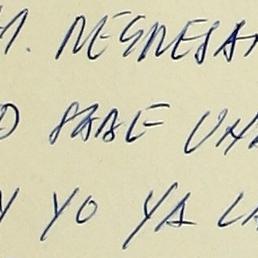 M. REGRESAR
O SABE UNA
Y YO YA LA